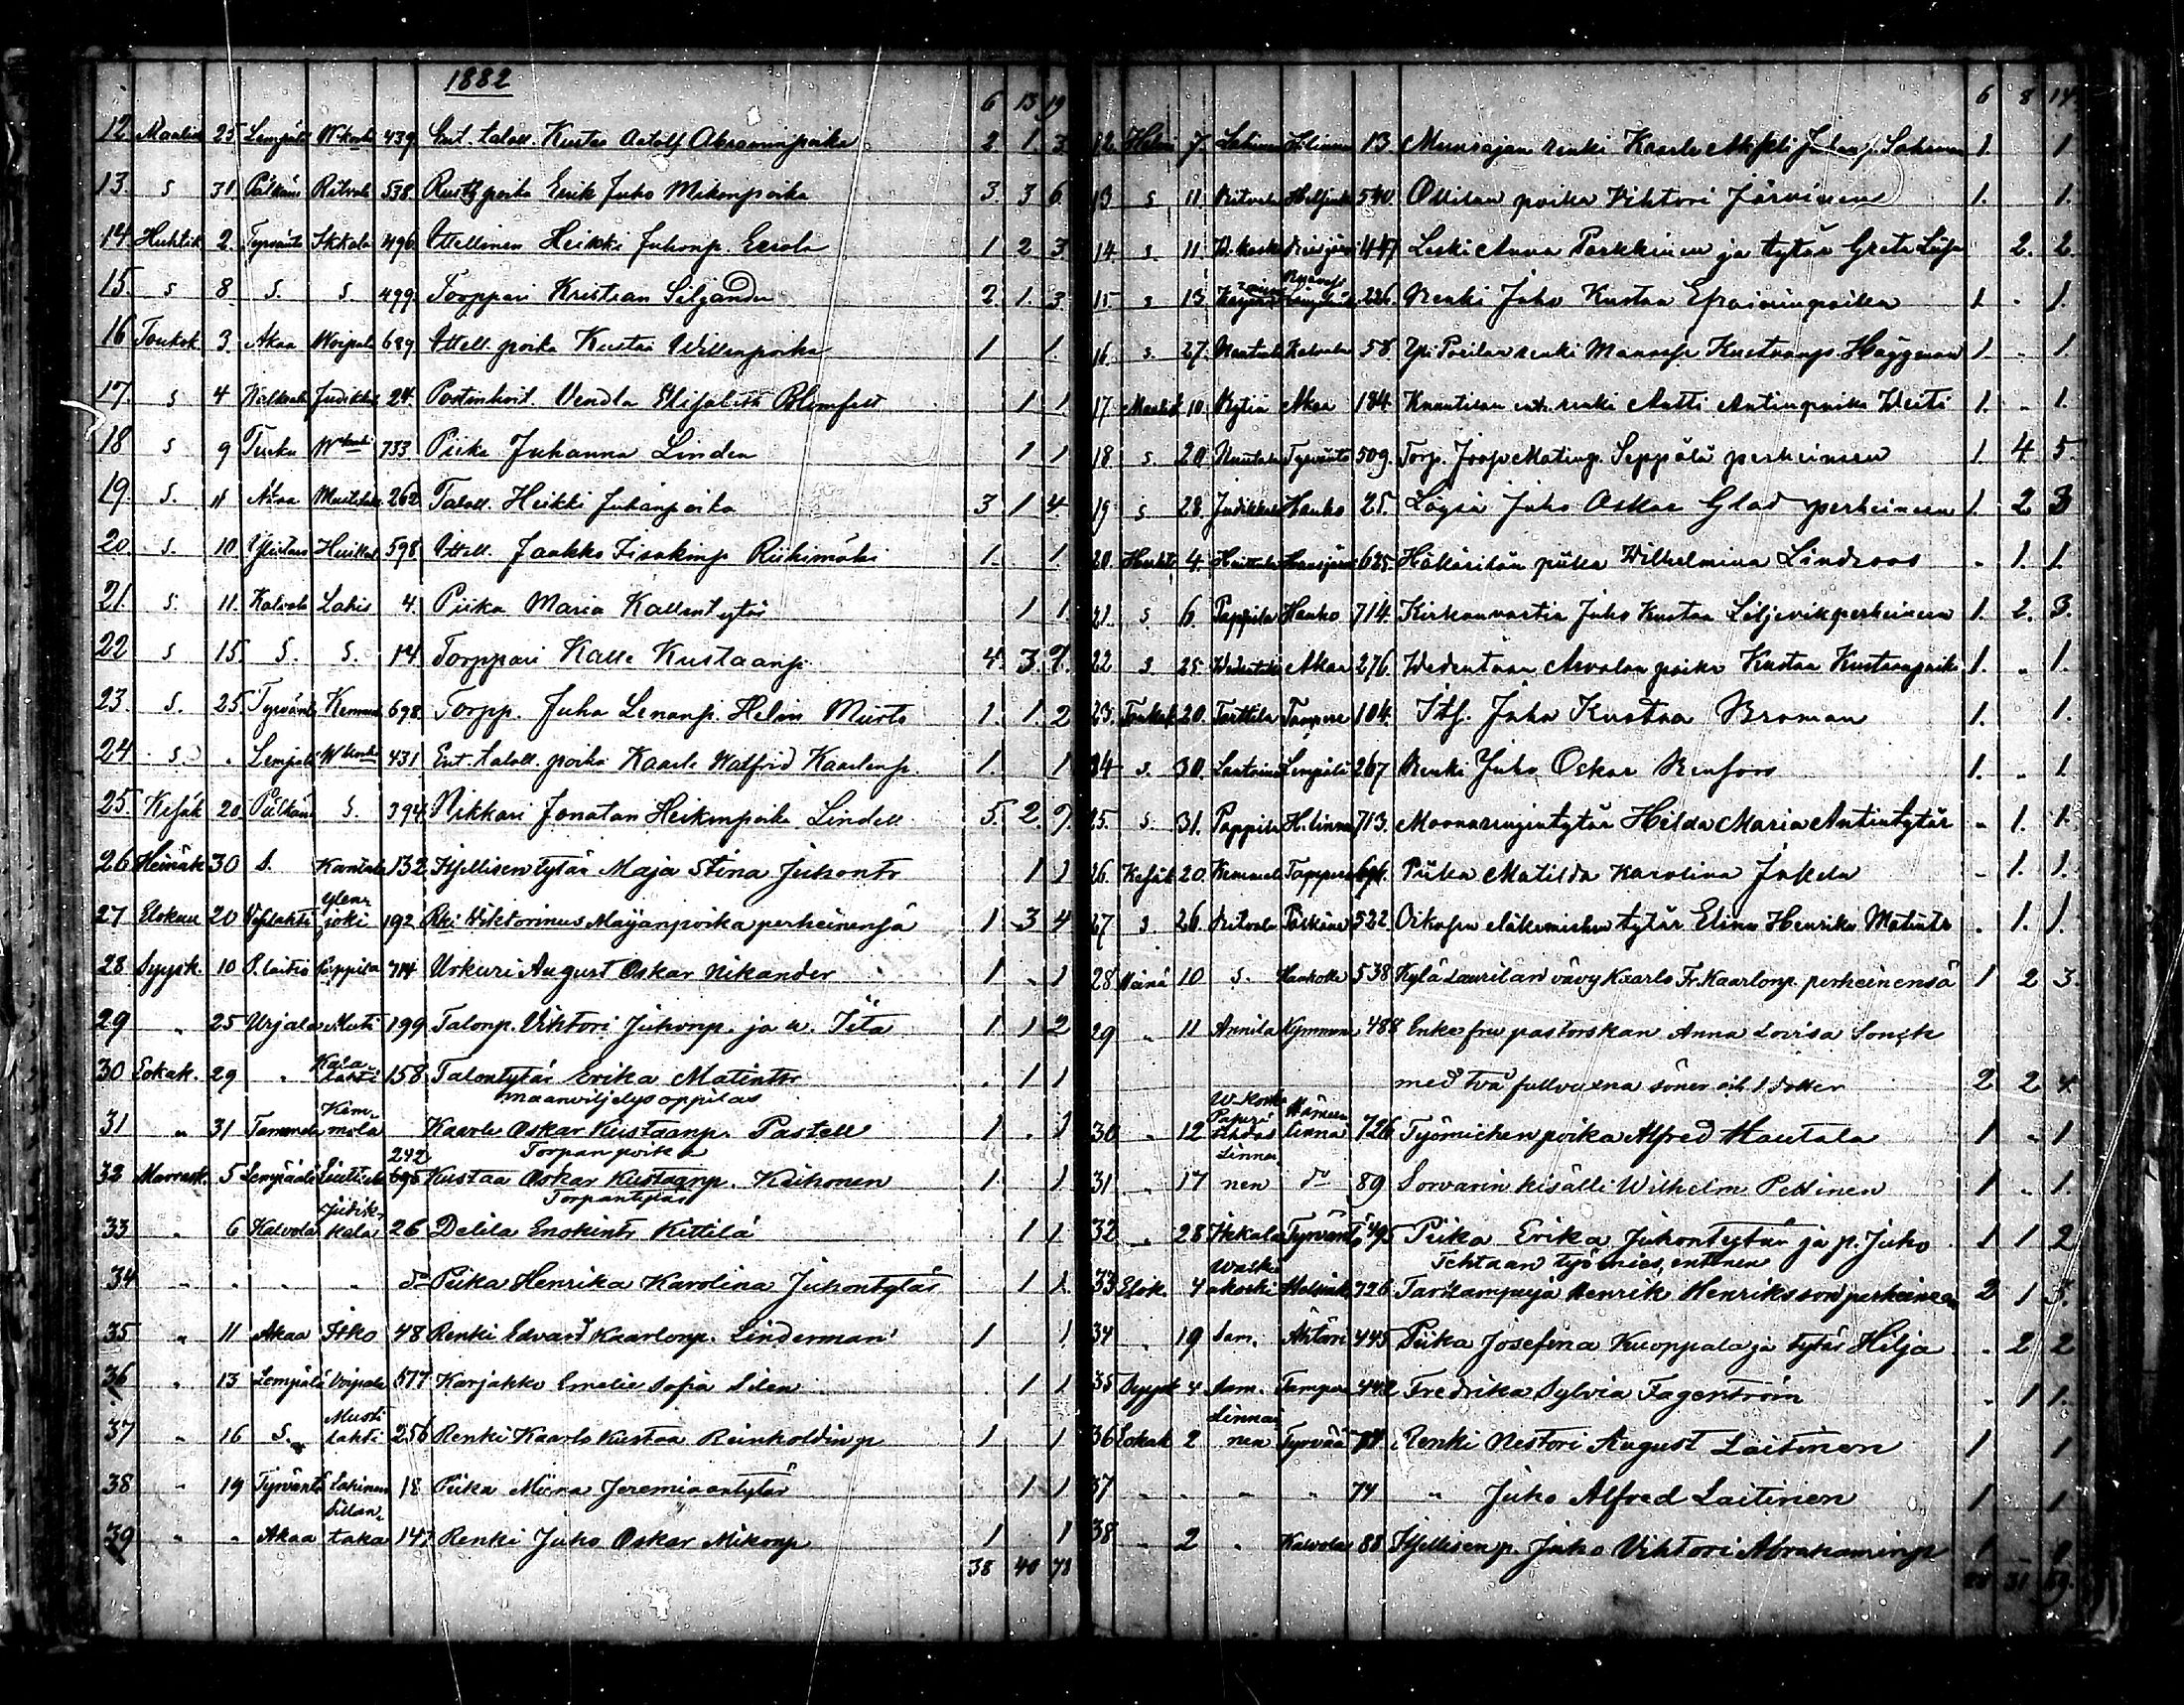 1882
6 13 19
12 Maalisk 25 Lempäälä W.koski 439 Ent. taloll. Kustaa Adolf Abraminpoika 2. 1. 3
13. s 31 Pälkäne Ritvala 538. Rusth. poika Erik Juho Mikonpoika 3. 3 6
14. Huhtik 2. Tyrväntö Ikkala 496 Ittellinen Heikki Juhonp. Eerola 1 2 3
15. s 8. s. s. 499 Torppari Kristian Siljander 2. 1. 3.
16 Toukok 3. Akaa Woipala 689 Ittell. poika Kustaa Willenpoika 1 1.
17. s 4 Kalvola Judikkal 24. Postinhoit. Vendla Elisabeth Blomfelt 1 1
18 s 9 Turku W.koski 733. Piika Juhanna Linden 1 1
19. s. 11 Akaa Mustilahti 262 Taloll. Heikki Juhanpoika 3 1 4
20. s. 10 Ylistaro Huikkal 598 Ittell. Jaakko Iisakinp. Riihimäki 1. 1.
21. s. 11. Kalvola Lahis 4. Piika Maria Kallentytär 1 1.
22 s 15. s. s. 14 Torppari Kalle Kustaanp. 4. 3. 7.
23. s. 25. Tyrväntö Kemmol 698. Torpp. Juha Lenanp. Helm Murto 1. 1. 2
24 s. „ Lempäälä W.koski 431 Ent. taloll. poika Kaarle Walfrid Kaarlenp. 1. 1
25. Kesäk 20. Pälkäne s. 394. Nikkari Jonatan Heikinpoika Lindell 5. 2. 7.
26 Heinäk 30 s. Kantala 132 Itsellisen tytär Maja Stina Juhontr 1 1
27 Elokuu 20 Vesilahti Ylenjoki 192 Rki Wiktorinus Maijanpoika perheinensä 1. 3 4
28 Syysk. 10 P. laitio Pappila 714 Urkuri August Oskar Nikander 1 . 1
29 „ 25 Urjala Muti 199 Talonp. Viktori Juhonp. ja v. Iita 1. 1 2
30 Lokak. 29 „ Kala lahti 158 Talontytär Erika Matintr . 1 1
maanviljelysoppilas
31 „ 31 Tammela Kemmola Kaarle Oskar Kustaanp. Pastell 1 . 1
242 Torpan poika
32 Marrask. 5 Lempäälä 695 Kustaa Oskar Kustaanp. Kaihonen 1. 1
Torpantytär
33 „ 6 Kalvola Judikkala 26 Delila Enokintr Kittilä 1 1
34 „ „ „ „ do Piika Henrika Karolina Juhontytär 1 1
35 „ 11 Akaa Itko 48 Renki Edvard Kaarlonp. Linderman 1 1
36 „ 13 Lempäälä Voipala 577 Karjakko Emelie Sofia Silen 1 1
37 „ 16 s. Musti lahti 256 Renki Kaarlo Kustaa Reinholdinp 1 1
38 „ 19 Tyrväntö Lahinen 18 Piika Miina Jeremiaantytär 1 1
39 „ „ Akaa Sillan taka 147 Renki Juho Oskar Mikonp 1 1
38 40 78
6 8 14
12. Helmi 7. Lahinen H.linna 13. Muurajan renki Kaarle Juhanp. Lahinen 1. 1
13 s 11. Ritvala 540. Ollilan poika Viktori Järvinen 1. 1.
14. s. 11. W.koski 447 Leski Anna Parkkinen ja tytär Greta Liisa 2. 2.
15 s 13. 226. Renki Juho Kustaa Efraiminpoika 1 „ 1.
16. s. 27. Uuutala Kalvola 58 Yli Poxilan renki Manasse Kustaanp. Häggman 1. „ 1.
17 Maalisk 10. Kylin Akaa 184. Knuutilan ent. renki Antti Antinpoika Weiti 1. „ 1.
18 s. 20 Uuutala Tyrväntö 509. Torp. Joose Matinp. Seppälä perheineen 1. 4. 5.
19 s 28. Judikkala Hauho 25. Löysi Juho Oskar Glad perheineen 1. 2 3
20. Huhti 4. Huittula Hausjärvi 625. Hällärilän piika Wilhelmina Lindroos „ 1. 1.
21. s. 6. Pappila Hauho 714. Kirkonvartia Juho Kustaa Liljevik perheineen 1. 2. 3.
22 s. 25 Wedentaka Akaa 276. Wedentaan Arvolan poika Kustaa Kustaanpoika 1. „ 1.
23. Toukok 20. Tarttila Tampere 104. Its. Juho Kustaa Broman 1. 1.
24 s. 30. Lempäälä 267 Renki Juho Oskar Renfors 1. „ 1.
25. s. 31. Pappila H.linna 713. Maanarenjintytär Hilda Maria Antintytär „ 1. 1.
26. Kesäk 20. Kemmola Tampere 691. Piika Matilda Karolina Jakela „ 1. 1.
27 s 26. Ritvala Pälkäne 522 Oikosen elätkemiehen tytär Elina Henrika Matintr „ 1. 1.
28 Heinä 10 s. 538 Kylä Laurilan vävy Kaarlo Fr. Kaarlonp. perheinensä 1 2 3.
29 „ 11 Annila Kymmene 488 Enkefru pastorskan Anna Lovisa Sonck
med två fullvuxna söner och 1 dotter 2 2 4
30 „ 12 W. Koski Paperi tehdas Hämeen linna 726 Työmiehen poika Alfred Hautala 1 „ 1
31 „ 17 Linnai nen do 89 Sorvarin kisälli Wilhelm Pettinen 1 „ 1.
32 „ 28 Ikkala Tyrväntö 495 Piika Erika Juhontytär ja p. Juho 1 1 2
Tehtaan työmies, entinen
33 Elok. 4 Walkiakoski Helsinki 726 Tavitampuja Henrik Henriksson perheineen 2 1 3.
34 „ 19 Sam. Ähtäri 445 Piika Josefina Kuoppala ja tytär Hilja „ 2 2
35 Syysk 4 Sam. Tampere 442 Fredrika Sylvia Fagerström „ 1 1.
36 Lokak 2 Linnai nen Tyrvää 74 Renki Nestori August Laitinen 1 1
37 „ „ „ „ 74 „ Juho Alfred Laitinen 1 1
38 „ 2 „ Kalvola 88 Itsellisen p. Juho Viktori Abrahaminp 1 „ 1
31